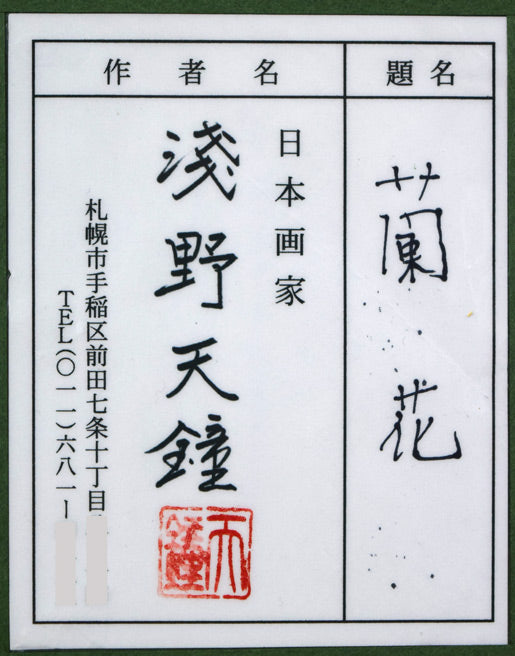 題名
蘭花
作者名
日本画家
淺野天鐘
天鐘
札幌市手稲区前田七条十丁目
TEL(〇一一)六八一ー